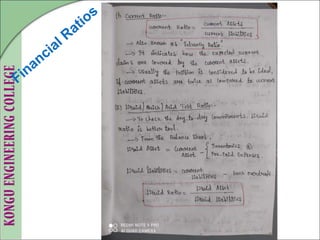 Financial Ratios
KONGU ENGINEERING COLLEGE
(1) Current Ratio:-
current Ratio = current Assets
current liabilities
→ Also known as Solvency Ratio.
→ It indicates how the expected current
claims are covered by the current assets.
→ Usually the position is considered to be ideal,
if current assets are twice as compared to current
liabilities.
(2) Liquid / Quick / Acid Test Ratio:-
→ To check the day-to-day commitments, liquid
ratio is better tool.
→ From the Balance Sheet,
Liquid Asset = Current Asset - { Inventories &
Pre-paid Expenses
Liquid liabilities = current liabilities - bank overdraft
Liquid Ratio = Liquid Asset
Liquid liabilities
REDMI NOTE 5 PRO
AI DUAL CAMERA